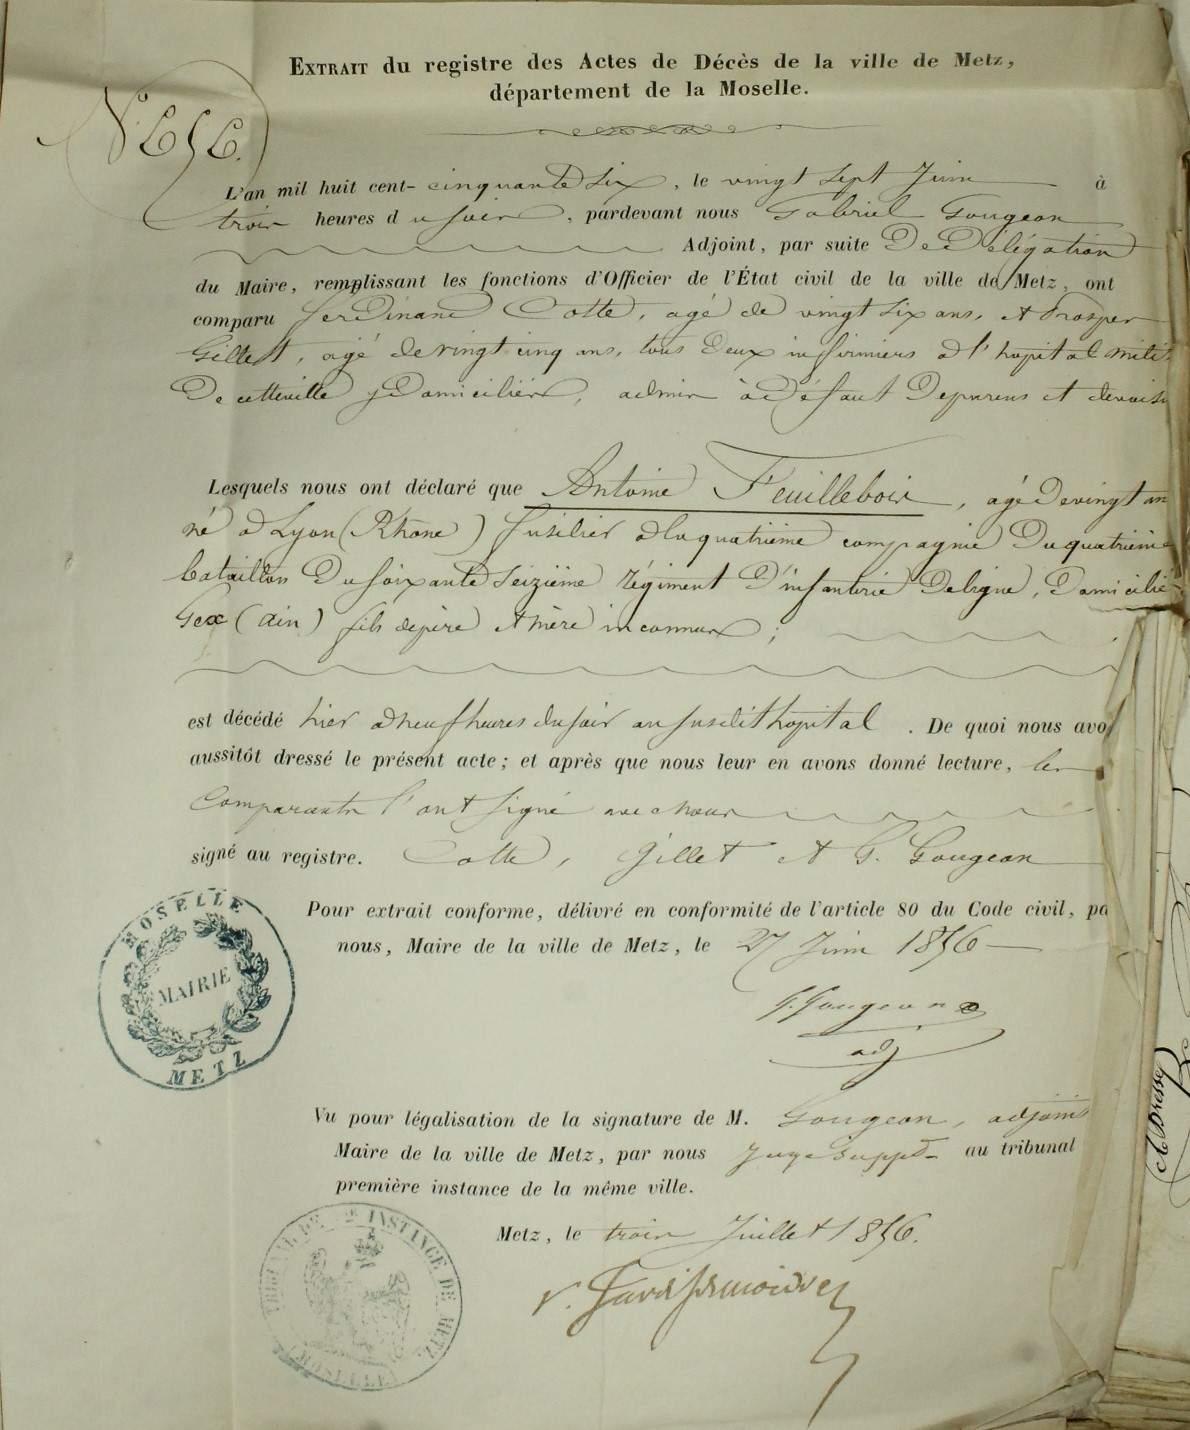 EXTRAIT du registre des Actes de Décès de la ville de Metz,
département de la Moselle.
L'an mil huit cent- cinquante six, le vingt sept Juin à
trois heures du soir, pardevant nous Gabriel Gougeon
Adjoint, par suite De Délégation
du Maire, remplissant les fonctions d'Officier de l'État civil de la ville de Metz, ont
comparu ferdinand Cotte, agé de vingt six ans, et Prosper
Gillet, agé de vingt cinq ans, tous deux infirmiers a l'hopital milit
De cette ville y Domiciliés, admis à défaut De parens et de voisi
Lesquels nous ont déclaré que Antoine Feuillebois, agé De vingt an
né a Lyon (Rhone) fusilier a la quatrième compagnie Du quatrième
bataillon Du soixante Seizième régiment D'infanterie De ligne, Domicilié
Gex (ain) fils de père et mère inconnus ;
est décédé hier a neuf heures du soir au susdit hopital. De quoi nous avo
aussitôt dressé le présent acte ; et après que nous leur en avons donné lecture, les
Comparants l'ont signé avec nous
signé au registre. Cotte, Gillet et G. Gougeon
Pour extrait conforme, délivré en conformité de l'article 80 du Code civil, pa
nous, Maire de la ville de Metz, le 27 Juin 1856
G. Gougeon
adj
MOSELLE
MAIRIE
METZ
Vu pour légalisation de la signature de M. Gougeon, adjoint
Maire de la ville de Metz, par nous Juge Suppt au tribunal
première instance de la même ville.
Metz, le trois Juillet 1856.
TRIBUNAL DE 1RE INSTANCE DE METZ
(MOSELLE)
Adresse